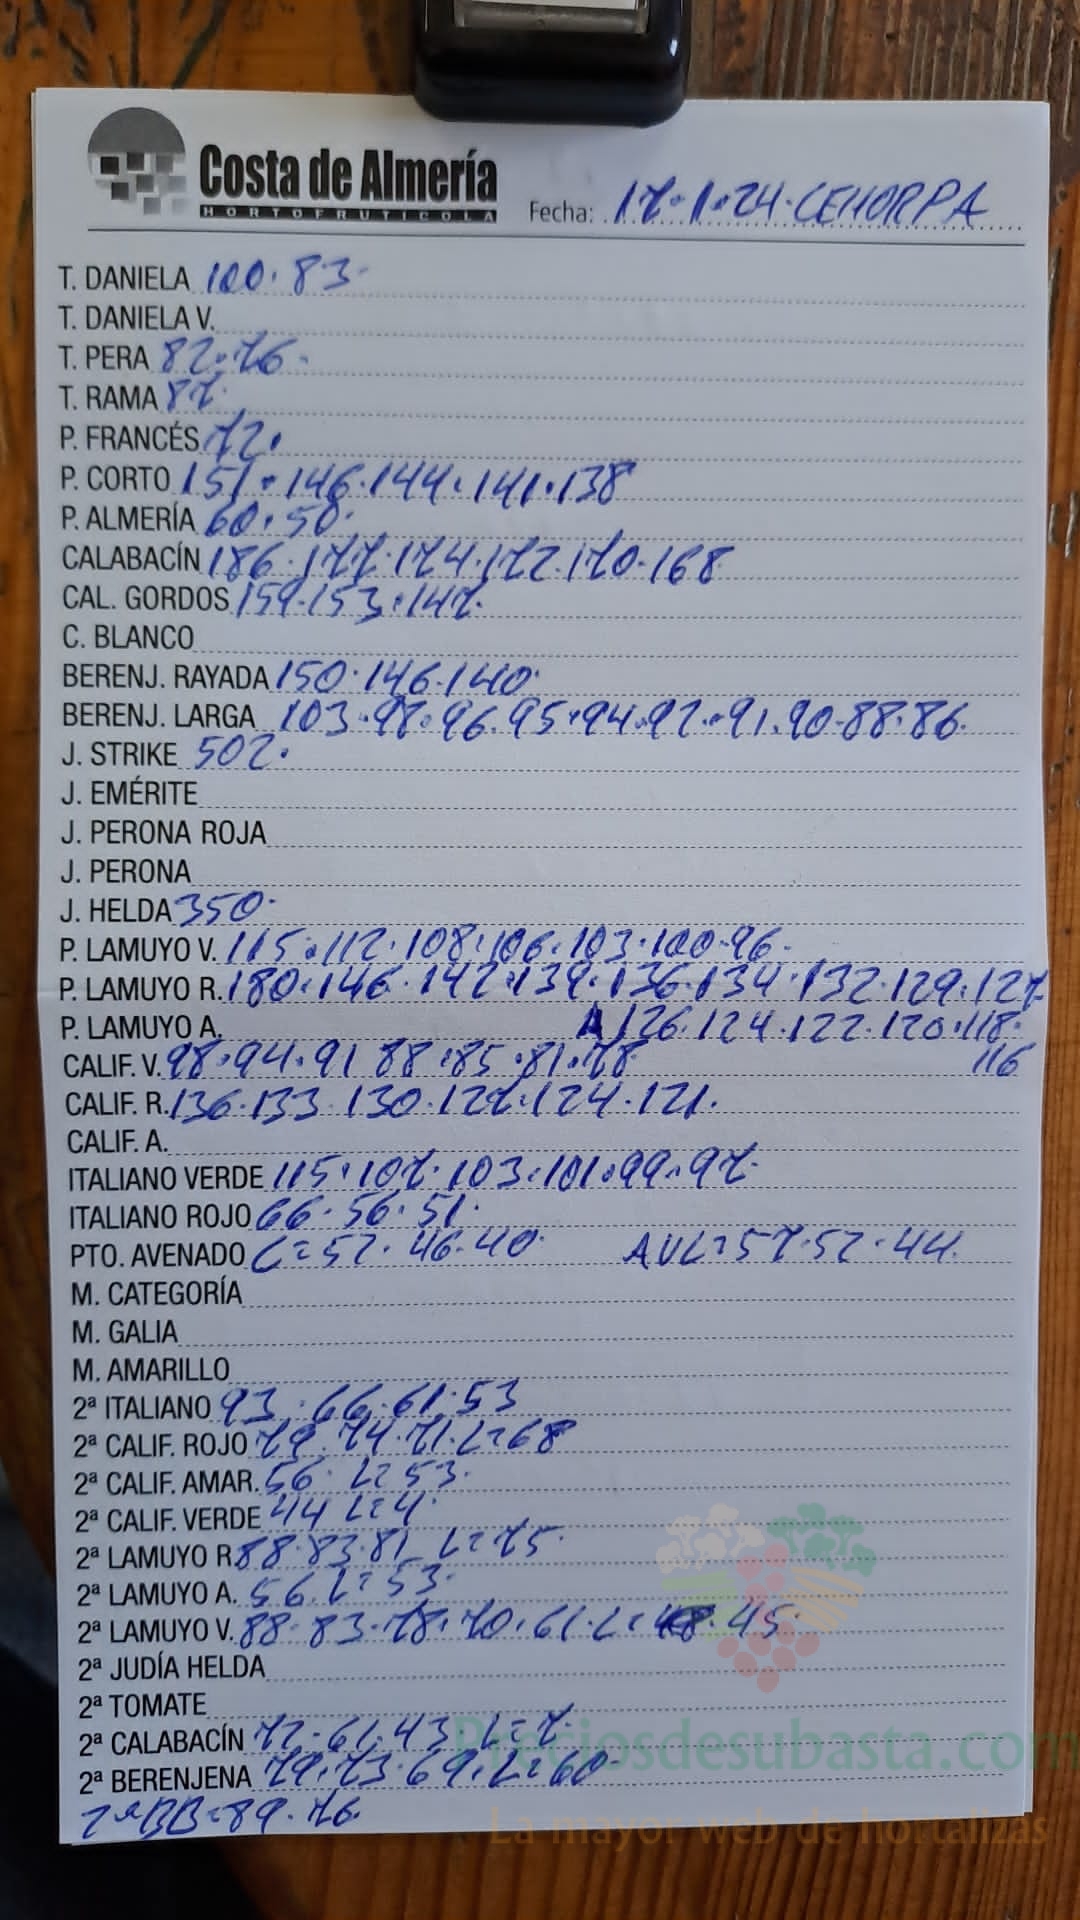 Costa de Almería
HORTOFRUTICOLA
Fecha: 17·1·24·CEHORPA
T. DANIELA 100·83·
T. DANIELA V.
T. PERA 82·76·
T. RAMA 87·
P. FRANCÉS 72·
P. CORTO 151·146·144·141·138
P. ALMERÍA 60·50·
CALABACÍN 186·177·174·172·170·168
CAL. GORDOS 159·153·147·
C. BLANCO
BERENJ. RAYADA 150·146·140·
BERENJ. LARGA 103·98·96·95·94·92·91·90·88·86·
J. STRIKE 502·
J. EMÉRITE
J. PERONA ROJA
J. PERONA
J. HELDA 350·
P. LAMUYO V. 115·112·108·106·103·100·96·
P. LAMUYO R. 180·146·142·139·136·134·132·129·127·
P. LAMUYO A. 126·124·122·120·118·
116
CALIF. V. 98·94·91 88·85·81·78
CALIF. R. 136·133·130·127·124·121·
CALIF. A.
ITALIANO VERDE 115·107·103·101·99·97·
ITALIANO ROJO 66·56·51·
PTO. AVENADO L=52·46·40· AVL=57·52·44·
M. CATEGORÍA
M. GALIA
M. AMARILLO
2ª ITALIANO 93·66·61·53
2ª CALIF. ROJO 79·74·71·L=68
2ª CALIF. AMAR. 56· L=53·
2ª CALIF. VERDE 44 L=4·
2ª LAMUYO R 88·83·81 L=75·
2ª LAMUYO A. 56·L=53·
2ª LAMUYO V. 88·83·78·70·61·L=48·45·
2ª JUDÍA HELDA
2ª TOMATE
2ª CALABACÍN 72·61·43·L=7·
2ª BERENJENA 79·73·69·L=60·
2ªBB=89·76·
Preciosdesubasta.com
La mayor web de hortalizas